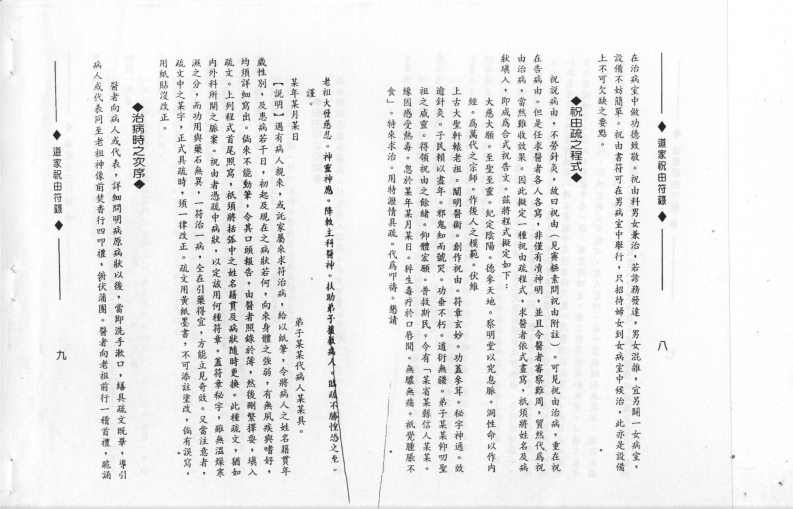 ◆ 道家祝由符籙 ◆
八
在治病室中做功德致敬。祝由科男女兼治，若診務發達，男女混雜，宜另闢一女病室，
設備不妨簡單。祝由書符可在男病室中舉行，只招待婦女到女病室中候治，此亦是設備
上不可欠缺之要點。
◆祝由疏之程式◆
祝說病由，不勞針灸，故曰祝由（見靈樞素問祝由附註）。可見祝由治病，重在祝
在告病由。但是任求醫者各人各寫，非僅有凟神明，並且令醫者審察難周，貿然代為祝
由治病，當然難收效果。因此擬定一種祝由疏程式，求醫者依式畫寫，祇須將姓名及病
狀填入，即成為合式祝告文。茲將程式擬定如下：
大慈大願。至聖至靈。紀定陰陽。德參天地。察明堂以究息脈。洞性命以作內
經。為萬代之宗師。作後人之模範。伏維
上古大聖軒轅老祖。闡明醫術。創作祝由。符章玄妙。功蓋參茸。秘字神通。效
逾針灸。子民賴以盡年。邪鬼知而號哭。功垂不朽。道衍無疆。弟子某某仰叨聖
祖之威靈。得領祝由之餘緒。仰體宏願。普救斯民。今有「某省某縣信人某某。
緣因感受熱毒。忽於某年某月某日。猝生毒疔於口唇間。無膿無瘍。祇覺腫脹不
食」。特來求治。用特瀝情具疏。代為叩禱。懇請
老祖大發慈悲。神靈神應。降敕主科醫神。扶助弟子
謹。
某年某月某日
弟子某某代病人某某具。
【說明】遇有病人親來，或託家屬來求符治病，給以紙筆，令將病人之姓名籍貫年
歲性別，及患病若干日，初起及現在之病狀若何，向來身體之強弱，有無夙疾與嗜好，
均須詳細寫出。倘來不能動筆，令其口頭報告，由醫者照錄於簿，然後刪繁擇要，填入
疏文。上列程式首尾照寫，祇須將括弧中之姓名籍貫及病狀隨時更換。此種疏文，猶如
內外科所開之脈案。祝由者憑疏中病狀，以定該用何種符章。蓋符章秘字，雖無溫燥寒
濕之分，而功用與藥石無異，一符治一病，全在引藥得宜，方能立見奇效。又當注意者，
疏文中之某字，正式具疏時，須一律改正。疏文用黃紙墨書，不可添註塗改，倘有誤寫，
用紙貼沒改正。
◆治病時之次序◆
醫者向病人或代表，詳細問明病原病狀以後，當即洗手漱口，繕具疏文既畢，導引
病人或代表同至老祖神像前焚香行四叩禮，俯伏蒲團。醫者向老祖前行一稽首禮，跪誦
◆ 道家祝由符籙 ◆
九